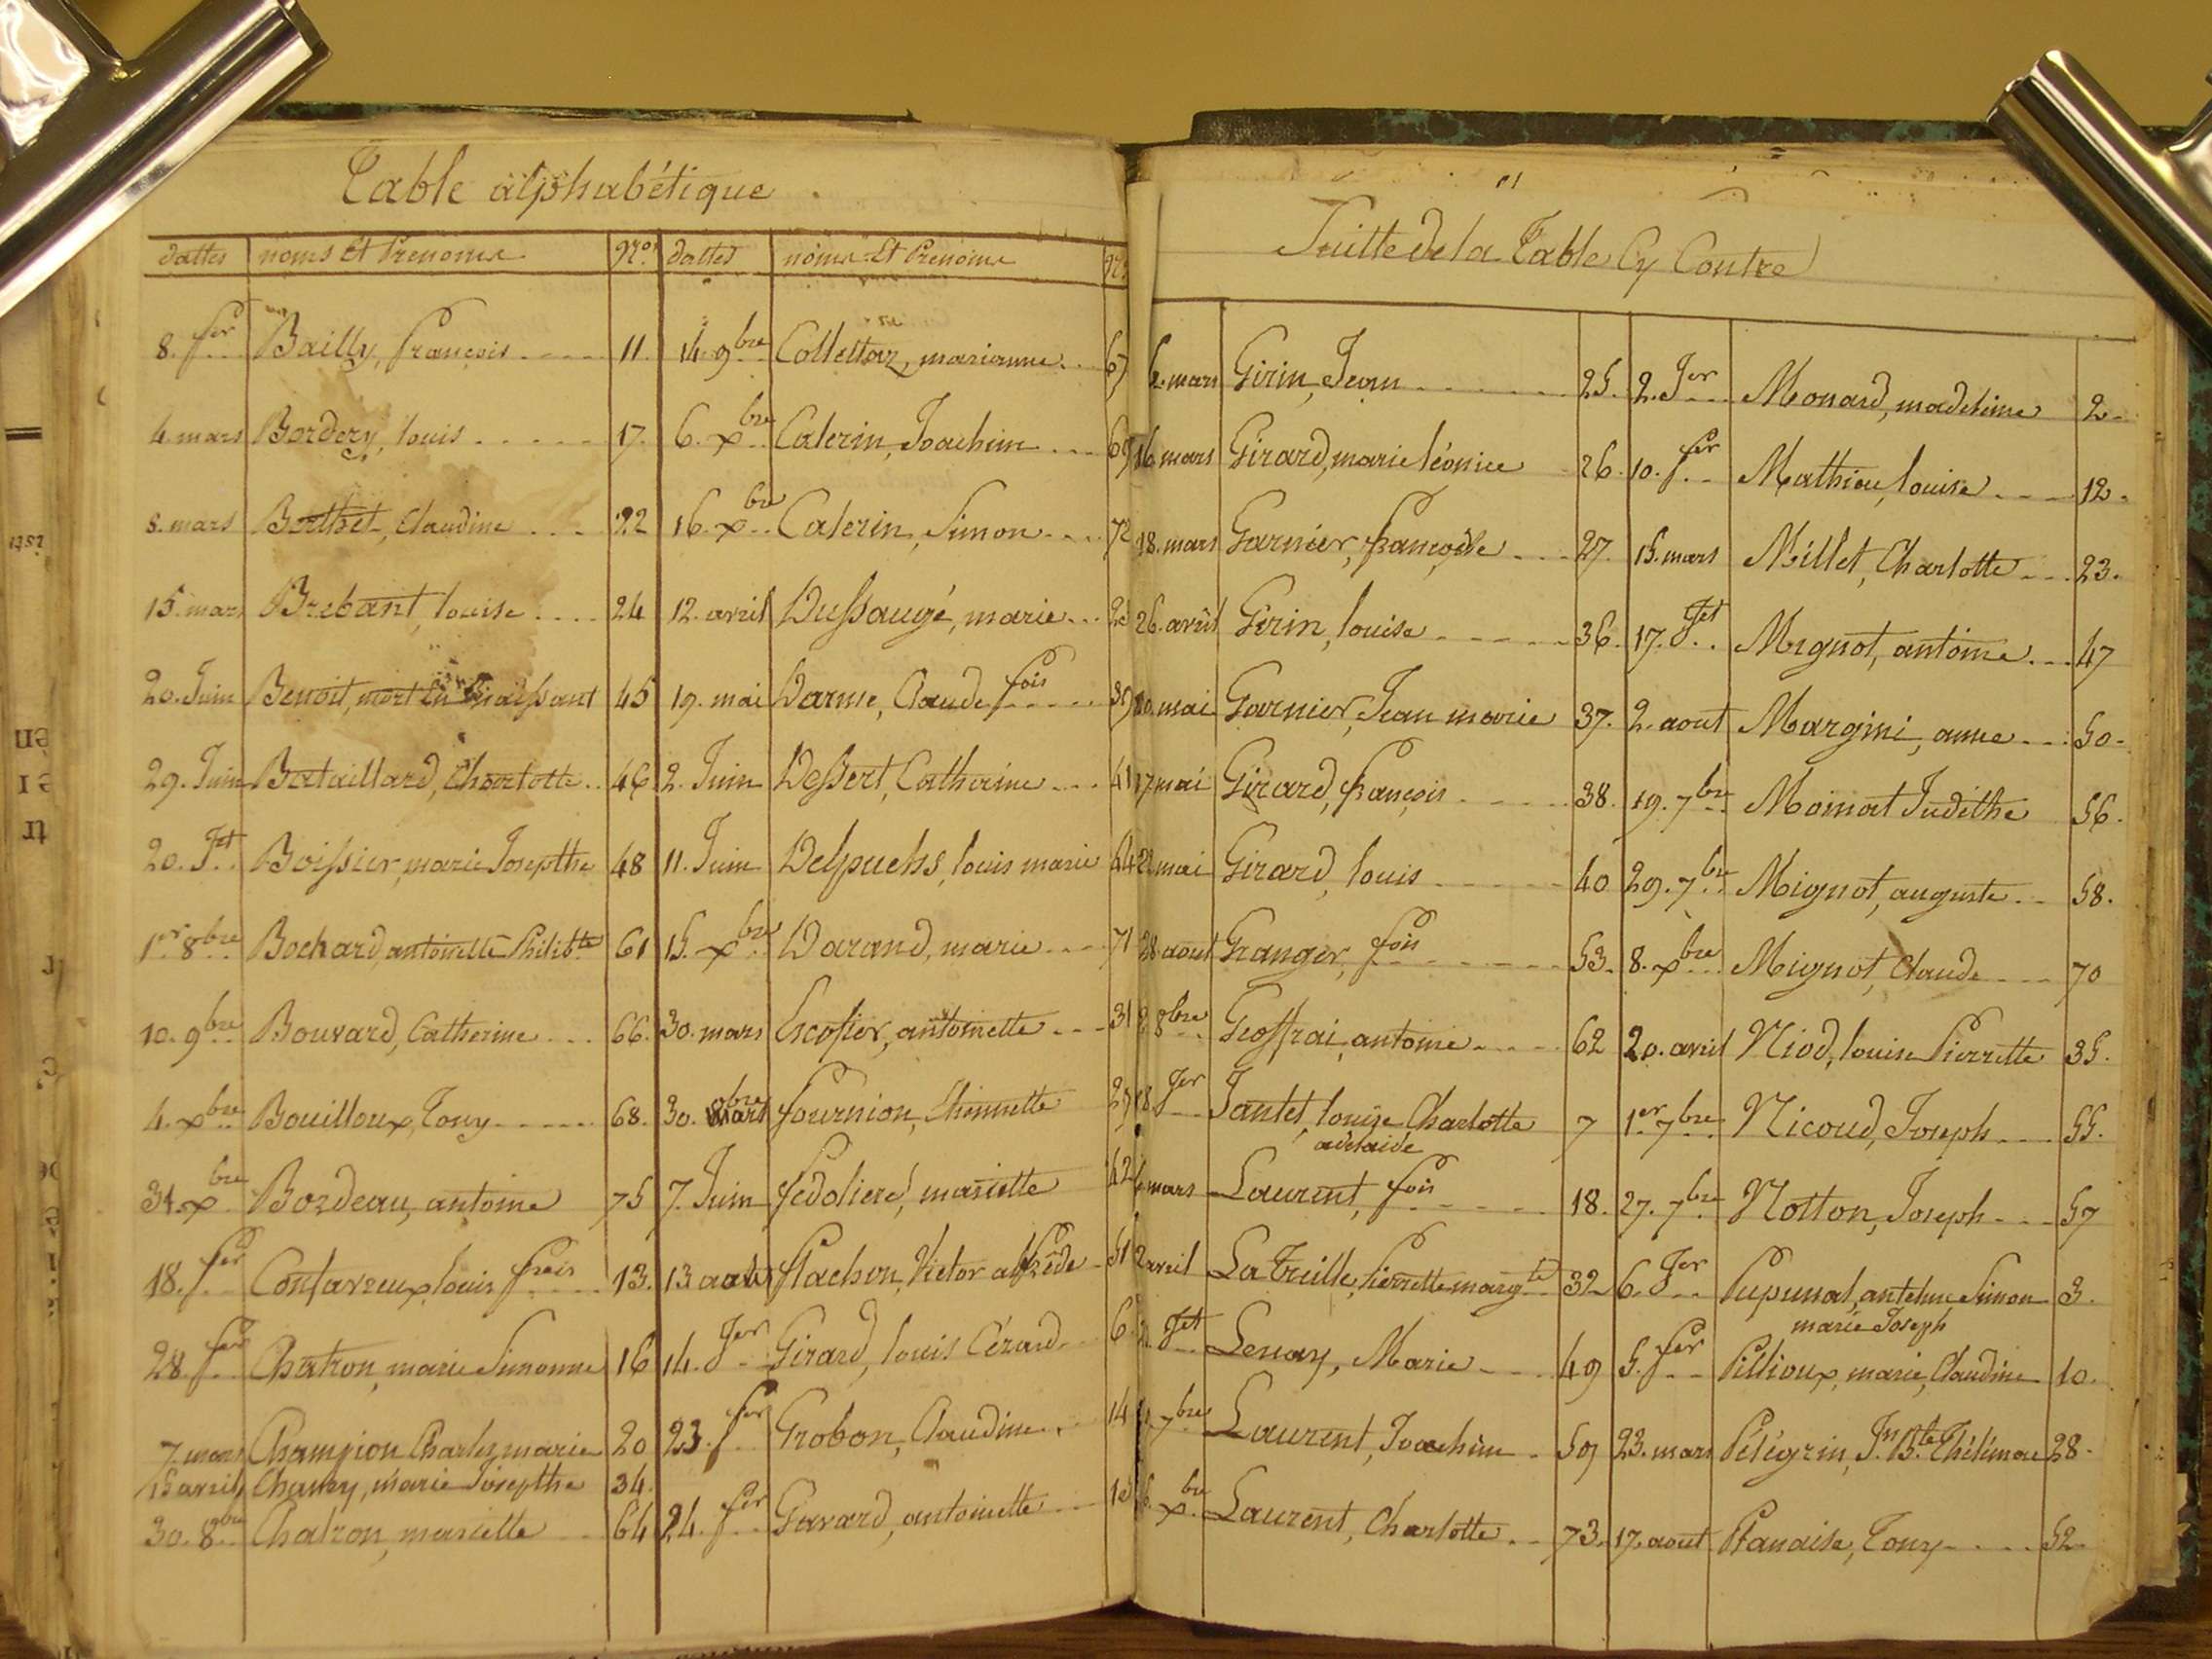 Table alphabétique
dattes noms Et Prenoms Nos
8. fer Bailly, françois 11.
4. mars Bordery, louis 17.
8. mars Berthet, Claudine 22
15. mars Brebant, louise 24
20. Juin Benoit, mort En Naissant 45
29. Juin Bataillard, Charlotte 46
20. Jet Boissier, marie Josepthe 48
1er 8bre Bochard, antoinette Philibte 61
10. 9bre Bouvard, Catherine 66.
4. xbre Bouilloux, Tony 68.
31. xbre Bordeau, antoine 75
18. fer louis 13.
28. fer Chatron, marie Simonne 16
7. mars Champion Charles marie 20
15 avril, marie Josepthe 34.
30. 8bre Chatron, mariette 64
dattes noms Et Prenoms Nos
14. 9bre Collettaz, marianne 67
6. xbre Caterin, Joachim 69
16. xbre Caterin, Simon 72
12. avril Dussaugé, marie
19. mai Darme, Claude fois 39
2. Juin Dessert, Catherine 41
11. Juin Delpuehs, louis marie 44
15. xbre Darand, marie 71
30. mars Escofier, antoinette 31
30. fournion, 29
7. Juin mariette 42
13 aout flachon, Victor alfrède 51
14. Jer Girard, louis Cézard 6
23. fer Grobon, Claudine 14
24. fer Gavard, antoinette
Suitte de la Table Cy Contre
mars Girin, Jean 25.
16. mars Girard, marie léonice 26.
18. mars Garnier, françoise 27.
26. avril Girin, louise 36.
10. mai Garnier, Jean marie 37.
17 mai Girard, françois 38.
22 mai Girard, louis 40
28. aout Granger, fois 53.
8bre Geoffrai, antoine 62
18. Jer Jantet, louise Charlotte 7
adelaide
mars Laurent, fois 18.
2 avril La Treille, Pierrette margte 32
Jet Lenay, Marie 49
7bre Laurent, Joachim 59
xbre Laurent, Charlotte 73.
2. Jer Monard, madeleine 2
10. fer Mathieu, louise 12.
15. mars Millet, Charlotte 23.
17. Jet Mignot, antoine 47
2. aout Margini, anne 50.
19. 7bre Moinat Judithe 56.
29. 7bre Mignot, auguste 58.
8. xbre Mignot, Claude 70
20. avril Niod, louise Pierrette 35.
1er 7bre Nicoud, Joseph 55.
27. 7bre Notton, Joseph 57
6. Jer Pupunat, antelme Simon 3.
marie Joseph
5. fer Pillioux, marie, Claudine 10.
23. mars Pélégrin, Jn Bte 28.
17. aout Planaise, Tony 52